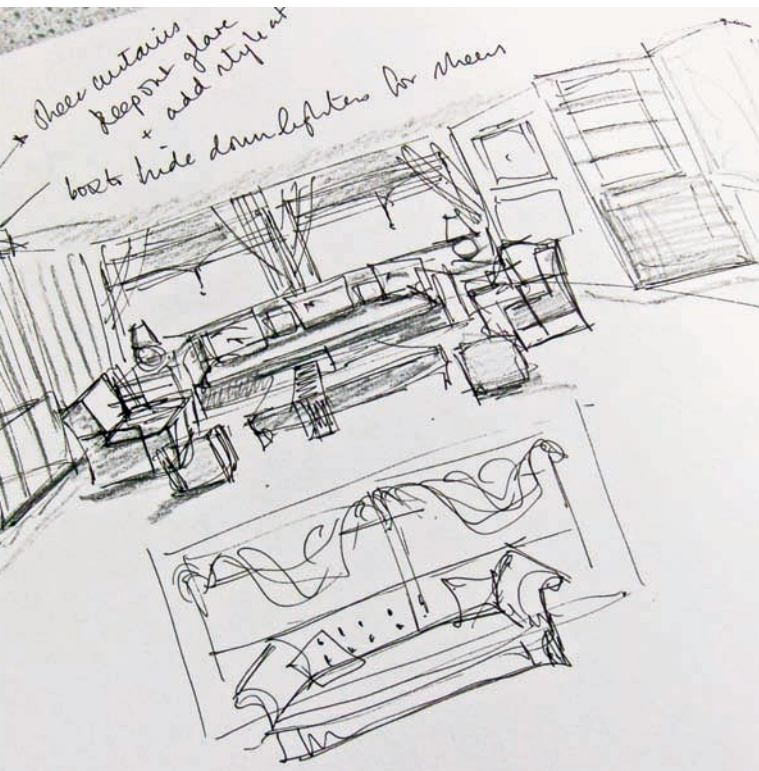 * sheer curtains
keep out glare
+ add style at
box to hide downlighters for sheers